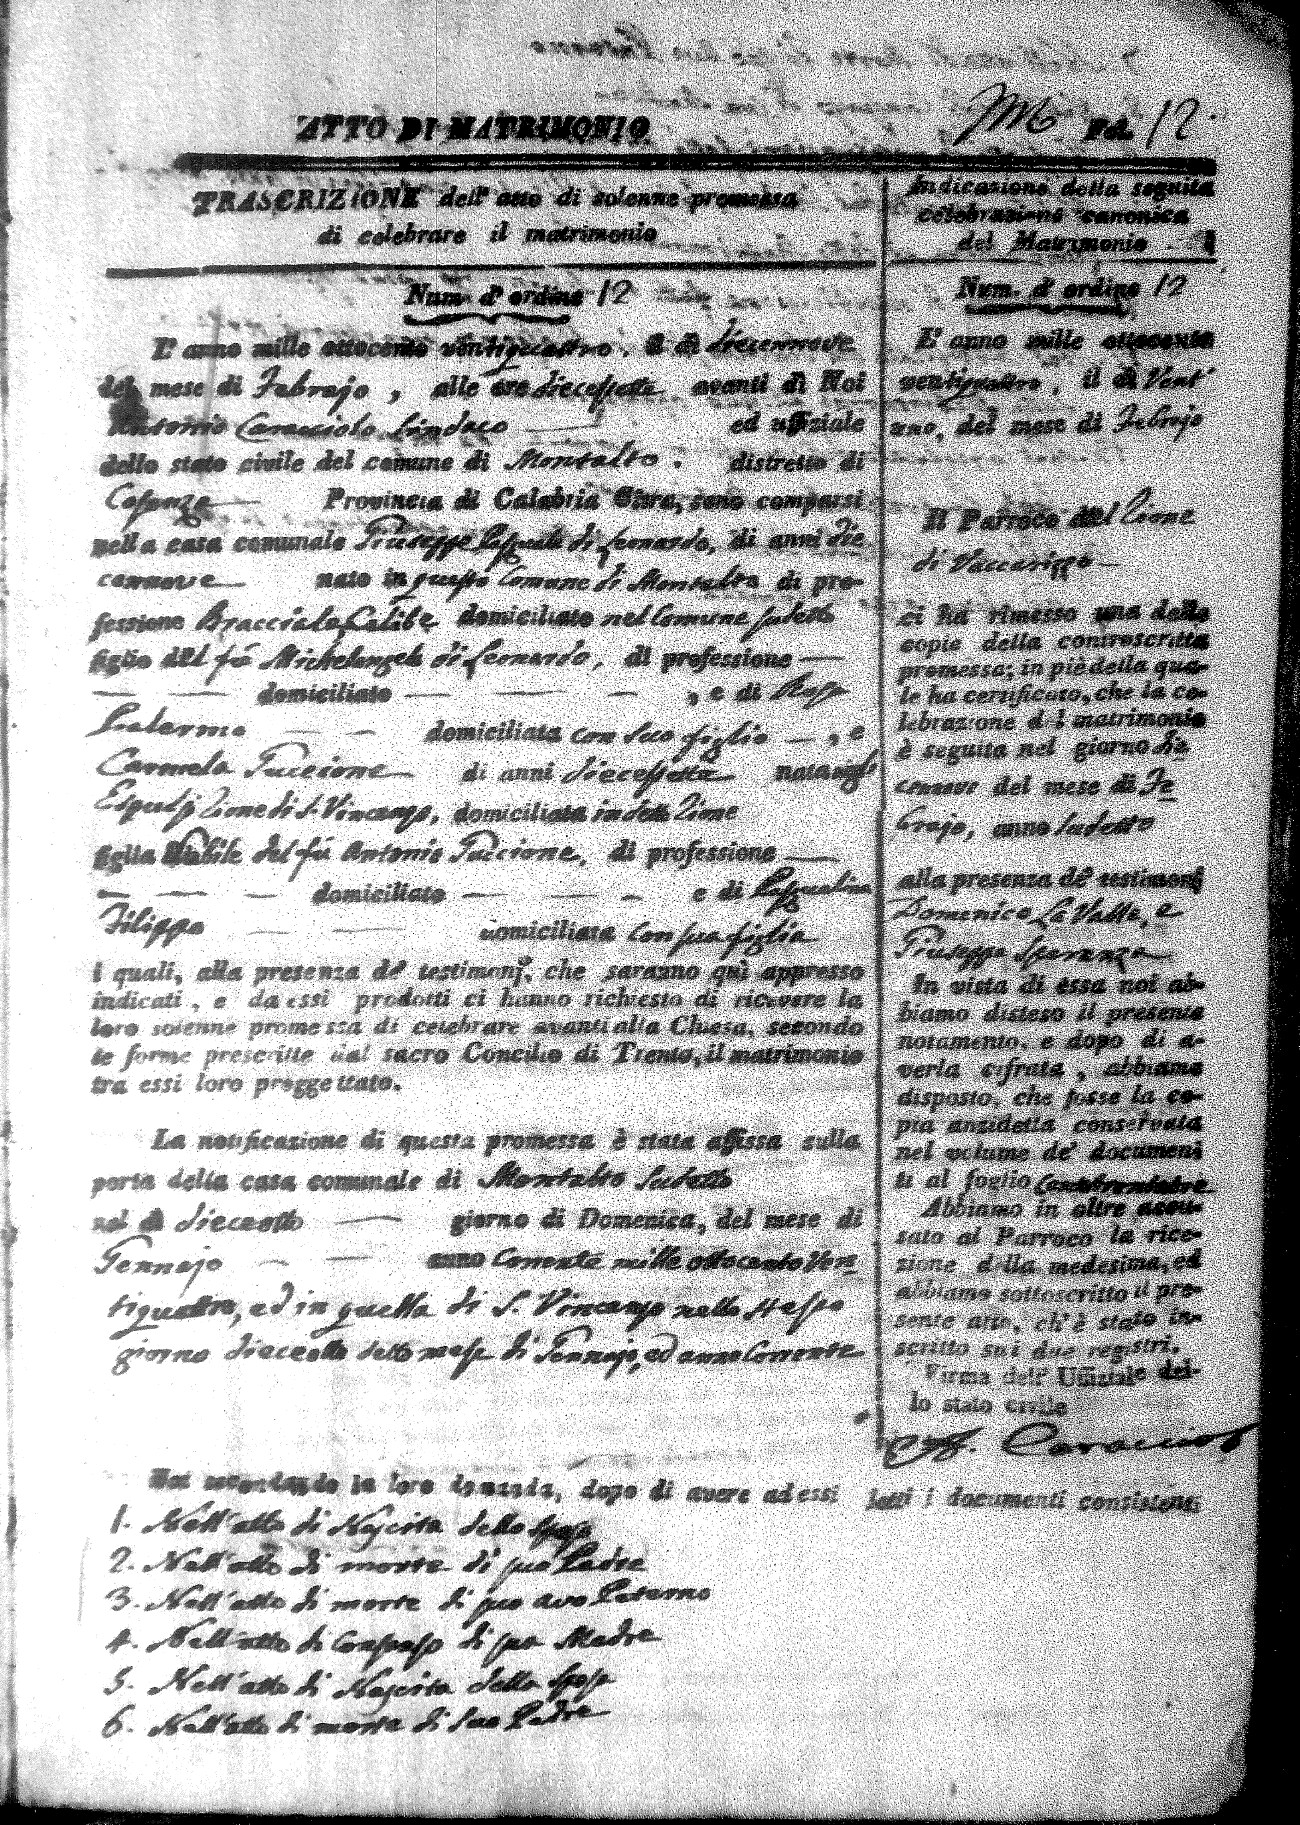 ATTO DI MATRIMONIO
Fol. 12.
TRASCRIZIONE dell' atto di solenne promessa
di celebrare il matrimonio
Num. d' ordine 12
L' anno mille ottocento ventiquattro. a dì diecennove
del mese di Febrajo, alle ore diecessette avanti di Noi
Antonio Caracciolo Sindaco ed uffiziale
dello stato civile del comune di Montalto. distretto di
Cosenza Provincia di Calabria Citra, sono comparsi
nella casa comunale Giuseppe Pasquale di Leonardo, di anni die
cennove nato in questo Comune di Montalto di pro-
fessione Bracciale Celibe domiciliato nel Comune sudetto
figlio del fù Michelangelo di Leonardo, di professione —
— — domiciliato — — — , e di Rosa
Palermo — — domiciliata con suo figlio — , e
Carmela Puccione di anni diecessette nata
Esposti Rione di S. Vincenzo, domiciliata in detto Rione
figlia Nubile del fù Antonio Puccione, di professione —
— — — domiciliato — — — e di Pasqualina
Filippo — — domiciliata con sua figlia
i quali, alla presenza de' testimonj, che saranno quì appresso
indicati, e da essi prodotti ci hanno richiesto di ricevere la
loro solenne promessa di celebrare avanti alla Chiesa, secondo
le forme prescritte dal sacro Concilio di Trento, il matrimonio
tra essi loro proggettato.
La notificazione di questa promessa è stata affissa sulla
porta della casa comunale di Montalto sudetto
nel dì dieceotto — giorno di Domenica, del mese di
Gennajo — — anno Corrente mille ottocento Ven
tiquattro, ed in quella di S. Vincenzo nello stesso
giorno dieceotto detto mese di Gennajo, ed anno Corrente
Indicazione della seguita
celebrazione canonica
del Matrimonio
Num. d' ordine 12
L' anno mille ottocento
ventiquattro, il dì Vent'
uno, del mese di Febrajo
Il Parroco del Rione
di Vaccarizzo
ci ha rimesso una della
copie della controscritta
promessa; in piè della qua-
le ha certificato, che la ce-
lebrazione del matrimonio
è seguita nel giorno die
cennove del mese di Fe
brajo, anno sudetto
alla presenza de' testimonj
Domenico La Valle, e
Giuseppe Speranza
In vista di essa noi ab-
biamo disteso il presente
notamento, e dopo di a-
verla cifrata, abbiamo
disposto, che fosse la co-
pia anzidetta conservata
nel volume de' documen
ti al foglio
Abbiamo in oltre accu-
sato al Parroco la rice-
zione della medesima, ed
abbiamo sottoscritto il pre-
sente atto, ch' è stato in-
scritto sui due registri.
Firma dell' Uffiziale del-
lo stato civile
Caracciolo
Noi secondando la loro domanda, dopo di avere ad essi letti i documenti consistenti
1. Nell'atto di Nascita dello sposo
2. Nell'atto di morte di suo Padre
3. Nell'atto di morte di suo avo Paterno
4. Nell'atto di Consenso di sua Madre
5. Nell'atto di Nascita della sposa
6. Nell'atto di morte di suo Padre